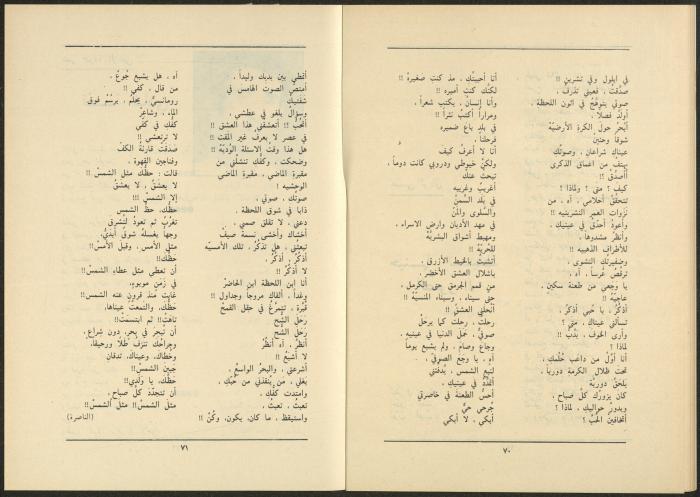 في ايلول وفي تشرين !!
صدّقتُ ، فعيني تذرف ،
صوتي يتوهّج في اتون اللحظة ،
أولد فصلا ،
أبْحرُ حولَ الكرةِ الأرضيّة
شوقاً وحنين
عيناكِ شراعان ، وصوتُكِ
يهتفُ من اعماق الذكرى
أأصدّقُ ؟!
كيف ؟ متى ؟ ولماذا ؟
تتحققُ أحلامي ، آه ، من
نزوات العمر التشرينيه !!
وأعودُ أحدّق في عينيكِ ،
وأنظرُ مشدوها ،
للأطرافِ الذهبيه !!
وضفيرتكِ النشوى ،
ترقصُ عُرساً ، آه ،
يا وجعي من طعنة سكين ،
عاجيّه !!
أذكُرُ ، يا حبي أذكرُ ،
تسألني عيناكِ ، متى ؟
وأرى الخوفَ ، يَدُبُّ !!
لماذا ؟
أنا أوّلُ من داعب حُلمكِ ،
تحت ظلال الكرمةِ دورياً ،
يلحقُ دوريّة
كان يزورُك كلّ صباح ،
ويدورُ حواليكِ ، لماذا ؟
أتخافين الحُبَّ ؟
أنا أحببتكِ ، مذ كنتِ صغيرهْ !!
لكنّك كنتِ أميره !!
وأنا إنسان ، يكتب شعراً ،
ومراراً أكتبُ نثراً !!
في بلدٍ باع ضميره
فرحلنا ،
أنا لا أعرفُ كيف
ولكنّ خيوطي ودروبي كانت دوماً ،
تبحثُ عنك
أغريبٌ وغريبه
في بلد السَّمنْ
والسّلوى والمنْ
في مهد الأديان وارض الاسراء ،
ومهبط أشواق البشريّة
للحُريّة !!
أتشبّثُ بالخيط الأزرق ،
باشلال العشق الأخضر ،
من قمم الجرمق حتى الكرمل ،
حتى سيناء ، وسيناء المنسيّة !!
أتحلّى العشقُ !!
رحلتُ ، رحلتُ كما يرحلُ
صوفيٌ ، حمل الدنيا في عينيه ،
وجاع وصام ، ولم يشبع يوماً
آه ، يا وجع الصوفيّ ،
لنبع الشمس ، يُدفئني
أتمدّدُ في عينيكِ ،
أحسُّ الطعنة في خاصرتي
جُرحي حيٌّ
أبكي ، لا أبكي
٧٠
أتمطى بين يديك وليداً ،
أمتصُّ الصوت الهامس في
شفتيكِ
وسؤالٌ يلغو في عطشي ،
أتُحبُّ !! أتعشقني هذا العشق !!
في عصر لا يعرف غير المقت !!
هل هذا وقتُ الاسئلة الورديّة !!
وضحكتِ ، وكفّكِ تنشلني من
مقبرة الماضي ، مقبرة الماضي
الوحشيه !
صوتُك ، صوتي ،
ذابا في شوق اللحظة ،
دعني ، لا تقلق صمتي ،
أخشاكَ وأخشى نسمة صيفٍ
تبعثني ، هل تذكُرُ ، تلك الأمسيّه
أذكُرُ ، أذكُرُ ،
لا أذكُرُ !!
أنا إبن اللحظة ابن الحاضرْ
وغداً ، ألقاك مروجاً وجداول !!
قُبّرة ، تتمرّغ في حقل القمحْ
رَحَل الشّح
رَحَل الشّح
أنظُر ، آه أنظُر
لا أشبعُ !!
أشرعتي ، والبحرُ الواسعُ ،
يغلي ، من ينقذني من حُبّكِ ،
وامتدت كفُّك ،
تعبثُ ، تعبثُ ،
واستيقظ ، ما كان، يكون، وكُنْ !!
آه ، هل يشبع جُوعٌ ،
من قال ، كفى !!
رومانسيٌ ، يحلُم ، يرسُم فوق
الماء ، وشاعرْ
كفّكِ في كفّي
لا ترتعشي !!
صدقتْ قارئةُ الكفّ
وفناجين القهوه ،
قالت : حظُّكَ مثل الشمس !!
لا يعشقُ ، لا يعشقُ
إلا الشّمسْ !!!
حظّك، حظُّ الشمس
تغربُ ثم تعودُ لتشرق
وجهاً يغسلهُ شوقٌ أبديٌّ،
مثل الأمس ، وقبل الأمسْ!!
حظّك!!
أن تُعطي مثل عطاء الشمسْ!!
في زمنٍ موبوءٍ،
غابت منذ قرونٍ عنه الشمس!!
حظّك، والتمعت عيناها،
تاهت!! ثم ابتسمت!!
أن تُبحِرَ في بحرٍ، دون شراع ٍ
وجراحُك تنزفُ طلّاً ورحيقاً،
وخُطاك، وعيناك، تدقان
جبين الشمسْ!!
حظّك، يا ولدي!!
أن تتجدّد كلّ صباح ،
مثل الشمس!! مثل الشمس!!
(الناصرة)
٧١